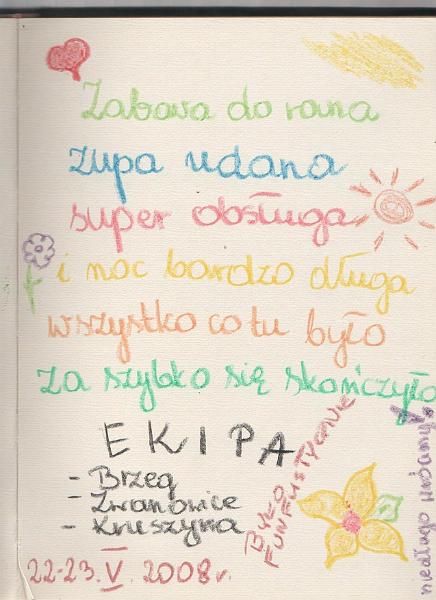 Zabawa do rana
zupa udana
super obsługa
i noc bardzo długa
wszystko co tu było
za szybko się skończyło
EKIPA
- Brzeg
- Zwanowice
- Kruszyna
22-23.V.2008r.
BYŁO
FUNFUSTYCZNIE
niedługo